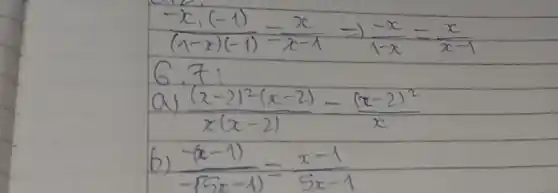 -x.(-1)/(1-x)(-1) = x/x-1 => -x/1-x = x/x-1
6.7:
a) (x-2)²(x-2)/x(x-2) = (x-2)²/x
b) -(x-1)/-(5x-1) = x-1/5x-1